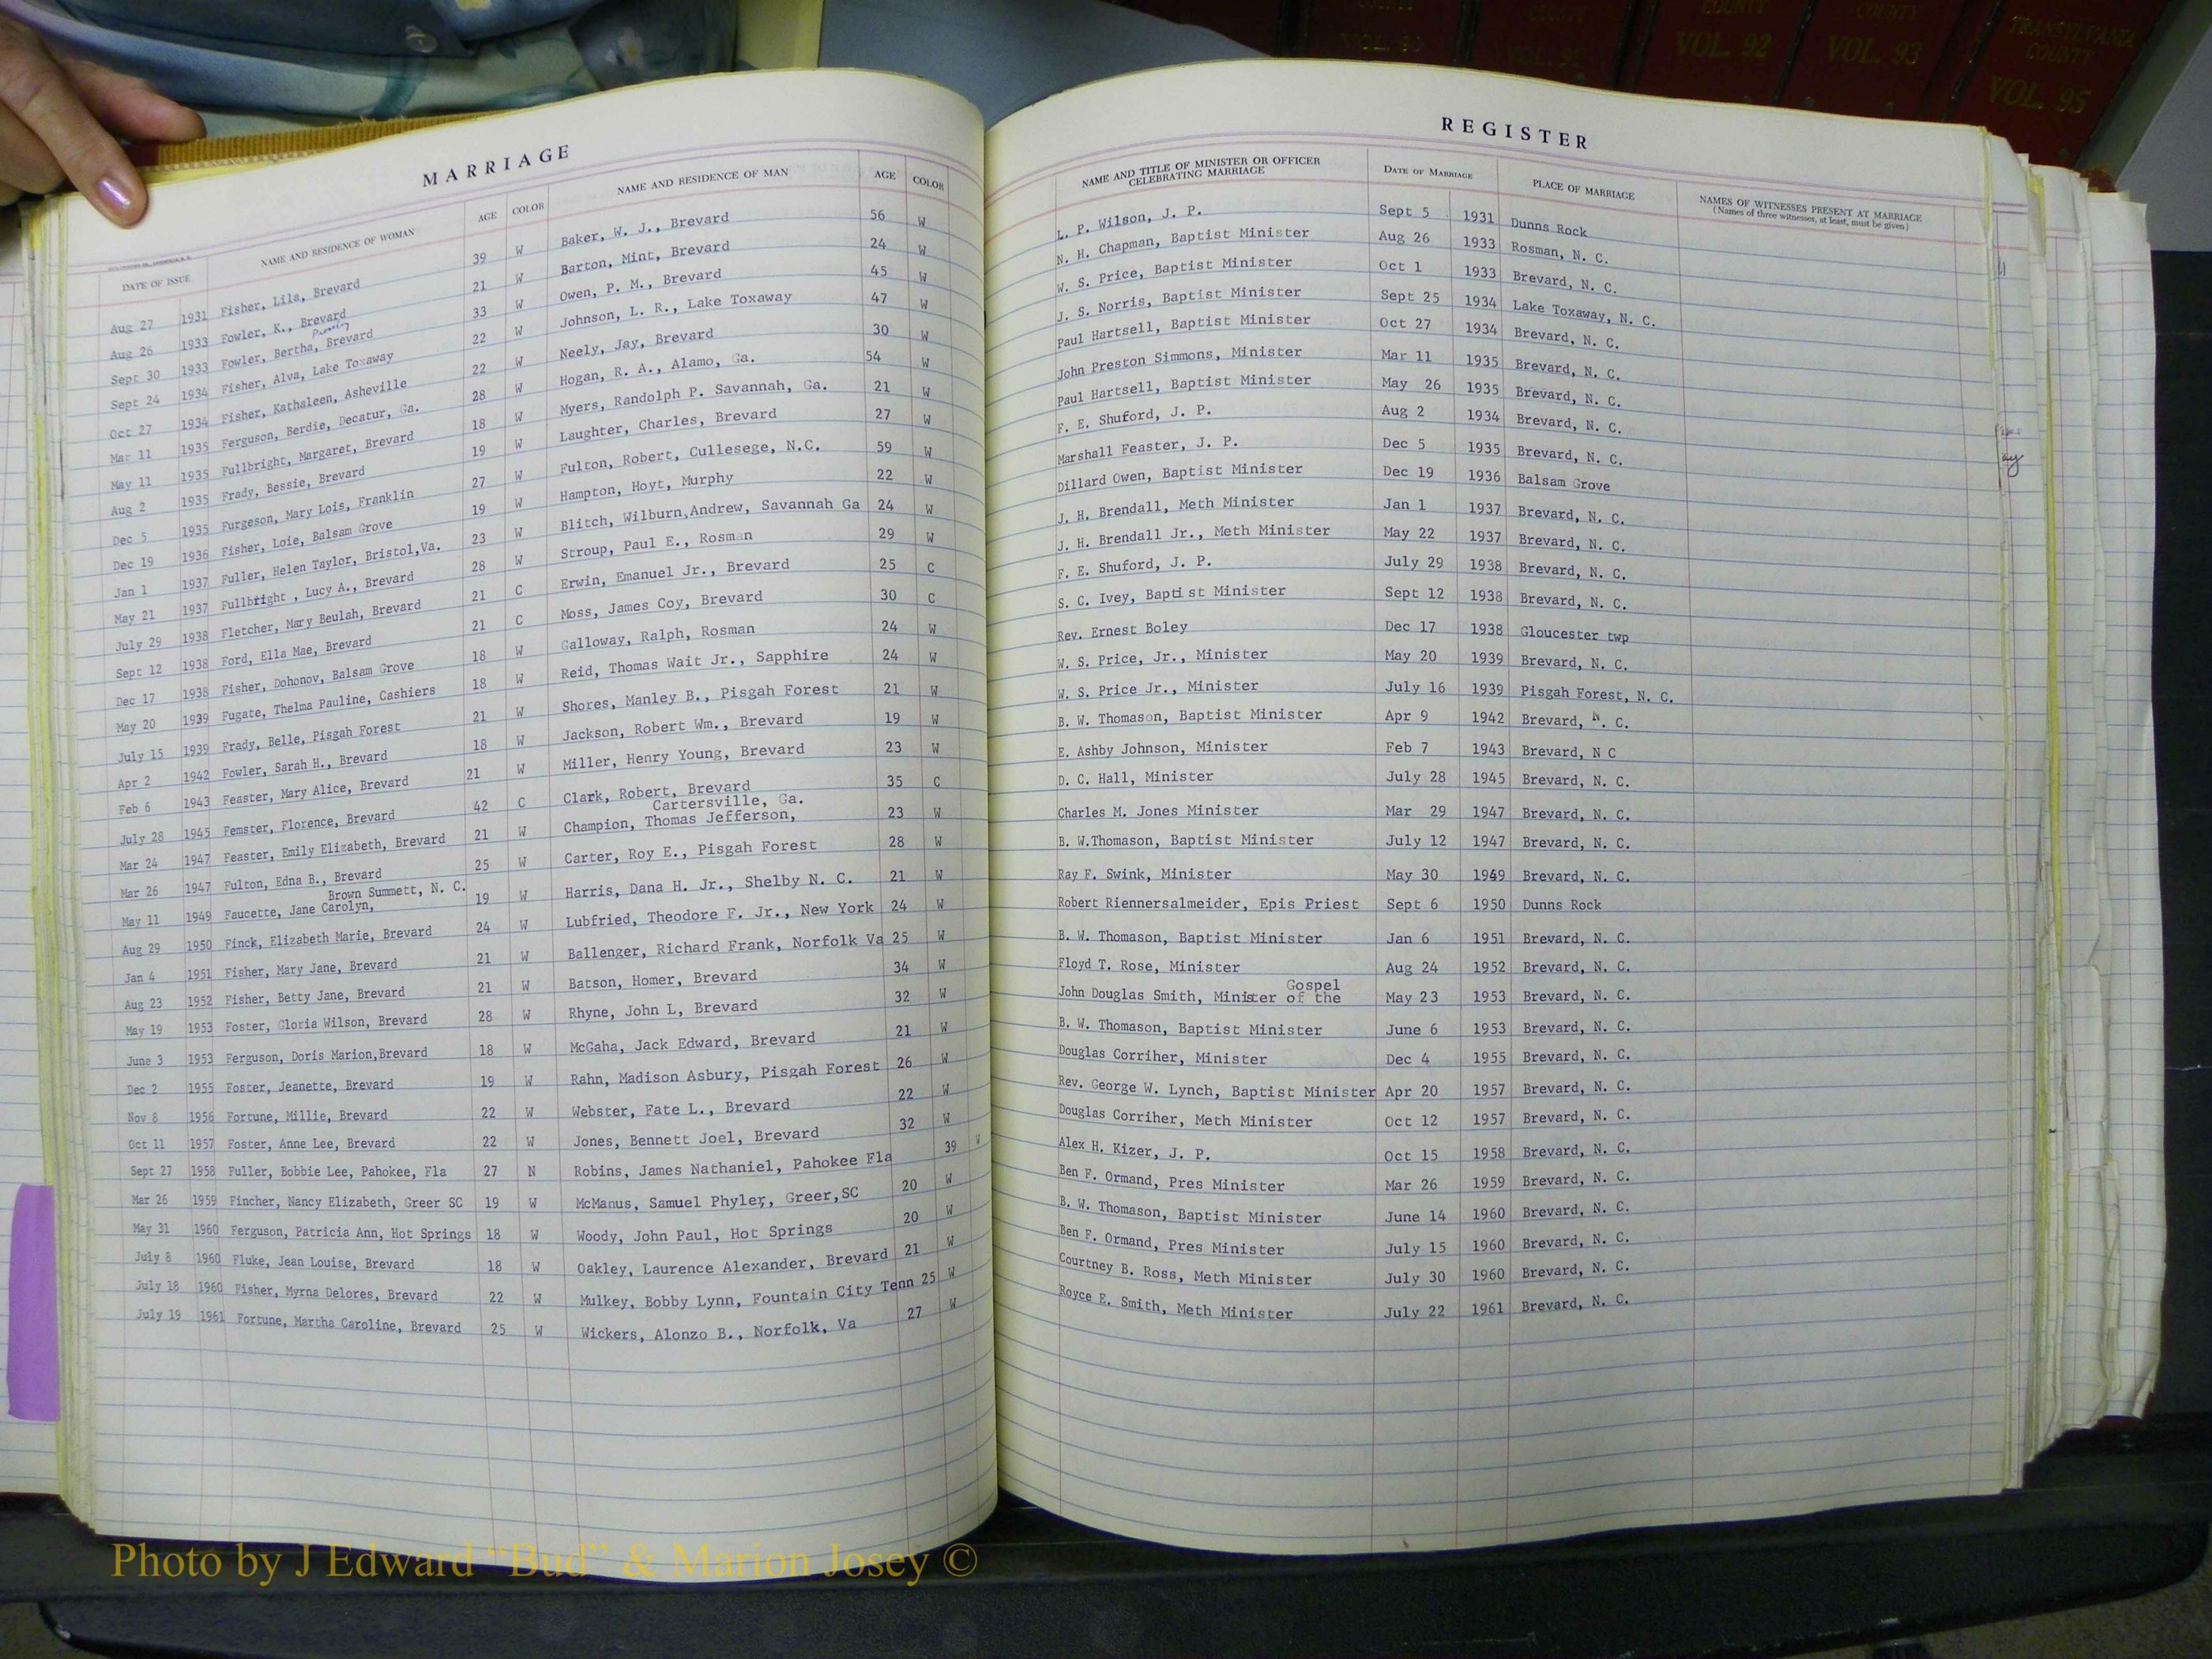 COUNTY COUNTY COUNTY COUNTY TRANSYLVANIA
COUNTY
VOL. 92 VOL. 93 VOL. 95
MARRIAGE
DATE OF ISSUE NAME AND RESIDENCE OF WOMAN AGE COLOR NAME AND RESIDENCE OF MAN AGE COLOR
Aug 27 1931 Fisher, Lila, Brevard 39 W Baker, W. J., Brevard 56 W
Aug 26 1933 Fowler, K., Brevard 21 W Barton, Mint, Brevard 24 W
Sept 30 1933 Fowler, Bertha, Brevard 33 W Owen, P. M., Brevard 45 W
Sept 24 1934 Fisher, Alva, Lake Toxaway 22 W Johnson, L. R., Lake Toxaway 47 W
Oct 27 1934 Fisher, Kathaleen, Asheville 22 W Neely, Jay, Brevard 30 W
Mar 11 1935 Ferguson, Berdie, Decatur, Ga. 28 W Hogan, R. A., Alamo, Ga. 54 W
May 11 1935 Fullbright, Margaret, Brevard 18 W Myers, Randolph P. Savannah, Ga. 21 W
Aug 2 1935 Frady, Bessie, Brevard 19 W Laughter, Charles, Brevard 27 W
Dec 5 1935 Furgeson, Mary Lois, Franklin 27 W Fulton, Robert, Cullesege, N.C. 59 W
Dec 19 1936 Fisher, Loie, Balsam Grove 19 W Hampton, Hoyt, Murphy 22 W
Jan 1 1937 Fuller, Helen Taylor, Bristol,Va. 23 W Blitch, Wilburn,Andrew, Savannah Ga 24 W
May 21 1937 Fullbright , Lucy A., Brevard 28 W Stroup, Paul E., Rosman 29 W
July 29 1938 Fletcher, Mary Beulah, Brevard 21 C Erwin, Emanuel Jr., Brevard 25 C
Sept 12 1938 Ford, Ella Mae, Brevard 21 C Moss, James Coy, Brevard 30 C
Dec 17 1938 Fisher, Dohonov, Balsam Grove 18 W Galloway, Ralph, Rosman 24 W
May 20 1939 Fugate, Thelma Pauline, Cashiers 18 W Reid, Thomas Wait Jr., Sapphire 24 W
July 15 1939 Frady, Belle, Pisgah Forest 21 W Shores, Manley B., Pisgah Forest 21 W
Apr 2 1942 Fowler, Sarah H., Brevard 18 W Jackson, Robert Wm., Brevard 19 W
Feb 6 1943 Feaster, Mary Alice, Brevard 21 W Miller, Henry Young, Brevard 23 W
July 28 1945 Femster, Florence, Brevard 42 C Clark, Robert, Brevard 35 C
Cartersville, Ga.
Mar 24 1947 Feaster, Emily Elizabeth, Brevard 21 W Champion, Thomas Jefferson, 23 W
Mar 26 1947 Fulton, Edna B., Brevard 25 W Carter, Roy E., Pisgah Forest 28 W
Brown Summett, N. C.
May 11 1949 Faucette, Jane Carolyn, 19 W Harris, Dana H. Jr., Shelby N. C. 21 W
Aug 29 1950 Finck, Elizabeth Marie, Brevard 24 W Lubfried, Theodore F. Jr., New York 24 W
Jan 4 1951 Fisher, Mary Jane, Brevard 21 W Ballenger, Richard Frank, Norfolk Va 25 W
Aug 23 1952 Fisher, Betty Jane, Brevard 21 W Batson, Homer, Brevard 34 W
May 19 1953 Foster, Gloria Wilson, Brevard 28 W Rhyne, John L, Brevard 32 W
June 3 1953 Ferguson, Doris Marion,Brevard 18 W McGaha, Jack Edward, Brevard 21 W
Dec 2 1955 Foster, Jeanette, Brevard 19 W Rahn, Madison Asbury, Pisgah Forest 26 W
Nov 8 1956 Fortune, Millie, Brevard 22 W Webster, Fate L., Brevard 22 W
Oct 11 1957 Foster, Anne Lee, Brevard 22 W Jones, Bennett Joel, Brevard 32 W
Sept 27 1958 Fuller, Bobbie Lee, Pahokee, Fla 27 N Robins, James Nathaniel, Pahokee Fla 39
Mar 26 1959 Fincher, Nancy Elizabeth, Greer SC 19 W McManus, Samuel Phyler, Greer,SC 20 W
May 31 1960 Ferguson, Patricia Ann, Hot Springs 18 W Woody, John Paul, Hot Springs 20 W
July 8 1960 Fluke, Jean Louise, Brevard 18 W Oakley, Laurence Alexander, Brevard 21 W
July 18 1960 Fisher, Myrna Delores, Brevard 22 W Mulkey, Bobby Lynn, Fountain City Tenn 25 W
July 19 1961 Fortune, Martha Caroline, Brevard 25 W Wickers, Alonzo B., Norfolk, Va 27 W
REGISTER
NAME AND TITLE OF MINISTER OR OFFICER CELEBRATING MARRIAGE DATE OF MARRIAGE PLACE OF MARRIAGE NAMES OF WITNESSES PRESENT AT MARRIAGE
(Names of three witnesses, at least, must be given)
L. P. Wilson, J. P. Sept 5 1931 Dunns Rock
N. H. Chapman, Baptist Minister Aug 26 1933 Rosman, N. C.
W. S. Price, Baptist Minister Oct 1 1933 Brevard, N. C.
J. S. Norris, Baptist Minister Sept 25 1934 Lake Toxaway, N. C.
Paul Hartsell, Baptist Minister Oct 27 1934 Brevard, N. C.
John Preston Simmons, Minister Mar 11 1935 Brevard, N. C.
Paul Hartsell, Baptist Minister May 26 1935 Brevard, N. C.
F. E. Shuford, J. P. Aug 2 1934 Brevard, N. C.
Marshall Feaster, J. P. Dec 5 1935 Brevard, N. C.
Dillard Owen, Baptist Minister Dec 19 1936 Balsam Grove
J. H. Brendall, Meth Minister Jan 1 1937 Brevard, N. C.
J. H. Brendall Jr., Meth Minister May 22 1937 Brevard, N. C.
F. E. Shuford, J. P. July 29 1938 Brevard, N. C.
S. C. Ivey, Baptist Minister Sept 12 1938 Brevard, N. C.
Rev. Ernest Boley Dec 17 1938 Gloucester twp
W. S. Price, Jr., Minister May 20 1939 Brevard, N. C.
W. S. Price Jr., Minister July 16 1939 Pisgah Forest, N. C.
B. W. Thomason, Baptist Minister Apr 9 1942 Brevard, N. C.
E. Ashby Johnson, Minister Feb 7 1943 Brevard, N C
D. C. Hall, Minister July 28 1945 Brevard, N. C.
Charles M. Jones Minister Mar 29 1947 Brevard, N. C.
B. W.Thomason, Baptist Minister July 12 1947 Brevard, N. C.
Ray F. Swink, Minister May 30 1949 Brevard, N. C.
Robert Riennersalmeider, Epis Priest Sept 6 1950 Dunns Rock
B. W. Thomason, Baptist Minister Jan 6 1951 Brevard, N. C.
Floyd T. Rose, Minister Aug 24 1952 Brevard, N. C.
Gospel
John Douglas Smith, Minister of the May 23 1953 Brevard, N. C.
B. W. Thomason, Baptist Minister June 6 1953 Brevard, N. C.
Douglas Corriher, Minister Dec 4 1955 Brevard, N. C.
Rev. George W. Lynch, Baptist Minister Apr 20 1957 Brevard, N. C.
Douglas Corriher, Meth Minister Oct 12 1957 Brevard, N. C.
Alex H. Kizer, J. P. Oct 15 1958 Brevard, N. C.
Ben F. Ormand, Pres Minister Mar 26 1959 Brevard, N. C.
B. W. Thomason, Baptist Minister June 14 1960 Brevard, N. C.
Ben F. Ormand, Pres Minister July 15 1960 Brevard, N. C.
Courtney B. Ross, Meth Minister July 30 1960 Brevard, N. C.
Royce E. Smith, Meth Minister July 22 1961 Brevard, N. C.
Photo by J Edward "Bud" & Marion Josey ©